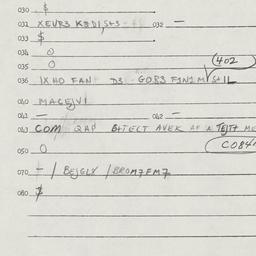 030 $
031 XEVR3 KBDI,S+3 032 —
033 $
034 0
035 0
(402
036 1XHO FAN D3 GOB3 F1N1M S+1L
040 MACEJVI
041 — 042 —
043 COM QAP B+TECT AVEK AF A TEJT7 ME
050 0 C084
070 — / BEJGLX / BROM7FM7
080 $